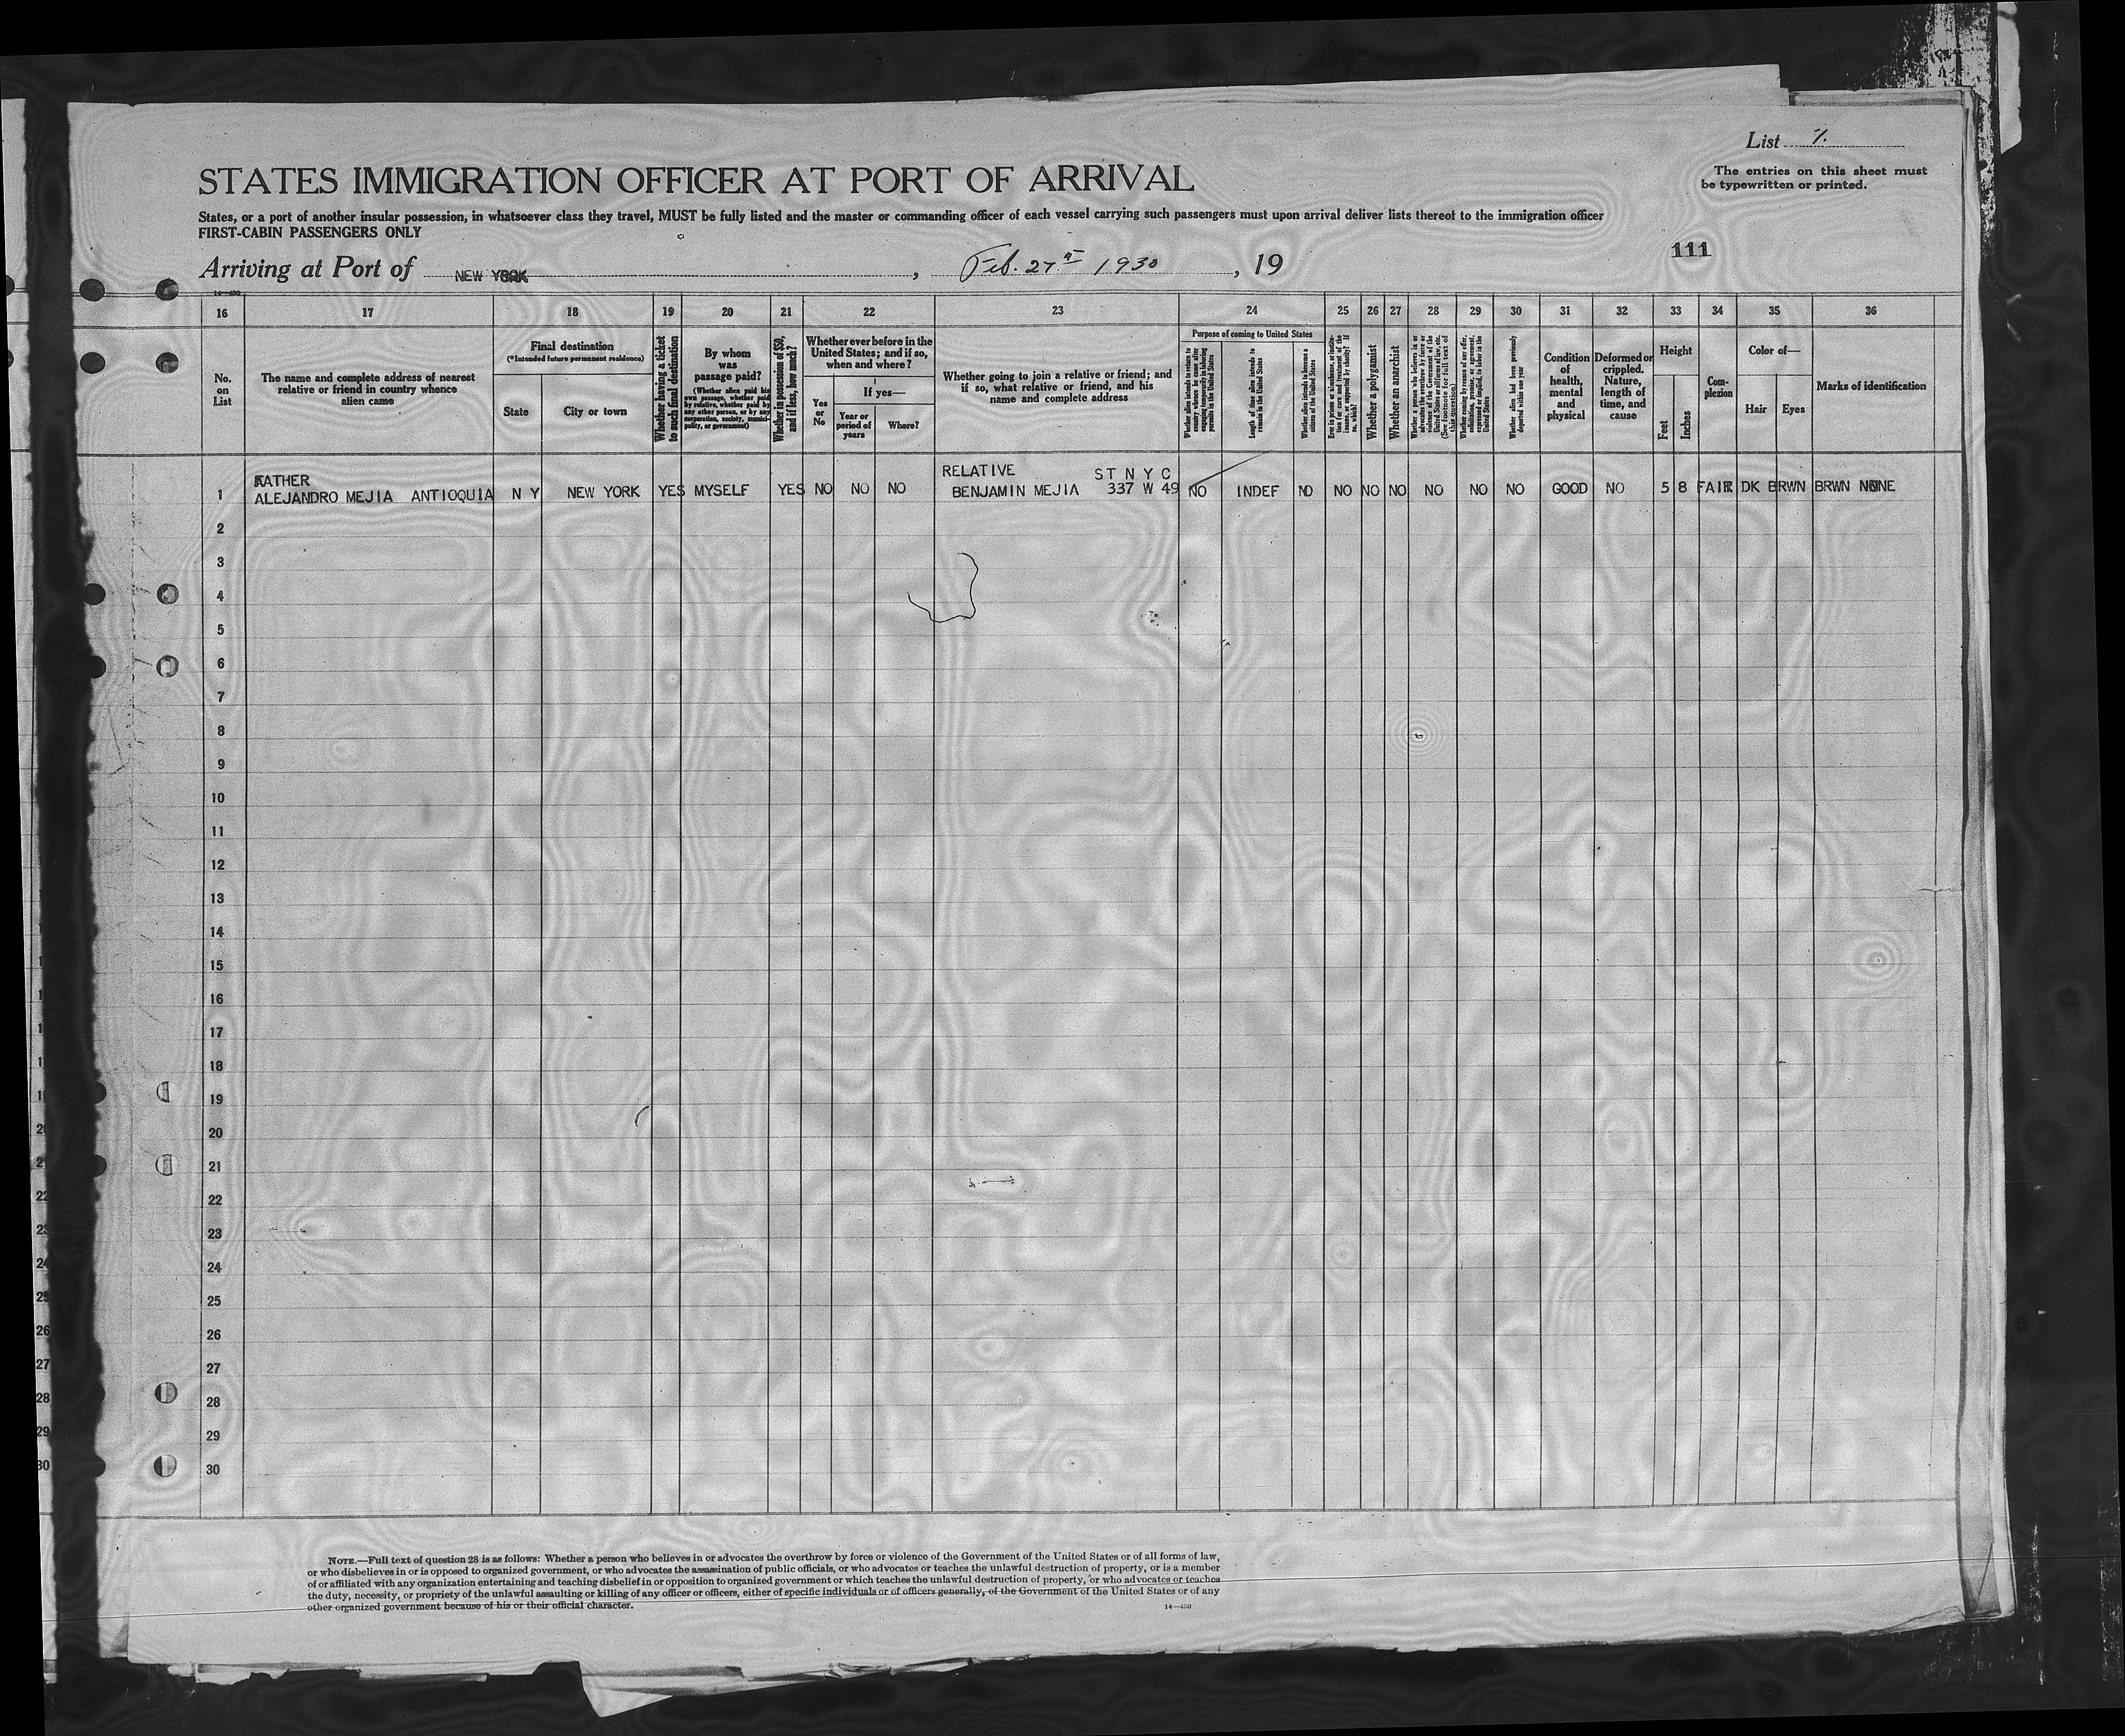 List 1.
The entries on this sheet must
be typewritten or printed.
STATES IMMIGRATION OFFICER AT PORT OF ARRIVAL
States, or a port of another insular possession, in whatsoever class they travel, MUST be fully listed and the master or commanding officer of each vessel carrying such passengers must upon arrival deliver lists thereof to the immigration officer
FIRST-CABIN PASSENGERS ONLY
111
Arriving at Port of NEW YORK, Feb. 27th 1930, 19
14—430
16 17 18 19 20 21 22 23 24 25 26 27 28 29 30 31 32 33 34 35 36
No.
on
List
The name and complete address of nearest
relative or friend in country whence
alien came
Final destination
(*Intended future permanent residence)
State
City or town
Whether having a ticket
to such final destination
By whom
was
passage paid?
(Whether alien paid his
own passage, whether paid
by relative, whether paid by
any other person, or by any
corporation, society, munici-
pality, or government)
Whether in possession of $50,
and if less, how much?
Whether ever before in the
United States; and if so,
when and where?
Yes
or
No
If yes—
Year or
period of
years
Where?
Whether going to join a relative or friend; and
if so, what relative or friend, and his
name and complete address
Purpose of coming to United States
Whether alien intends to return to
country whence he came after
engaging temporarily in laboring
pursuits in the United States
Length of time alien intends to
remain in the United States
Whether alien intends to become a
citizen of the United States
Ever in prison or almshouse, or institu-
tion for care and treatment of the
insane, or supported by charity? If
so, which?
Whether a polygamist
Whether an anarchist
Whether a person who believes in or
advocates the overthrow by force or
violence of the Government of the
United States or all forms of law, etc.
(See footnote for full text of
this question)
Whether coming by reason of any offer,
solicitation, promise, or agreement,
expressed or implied, to labor in the
United States
Whether alien had been previously
deported within one year
Condition
of
health,
mental
and
physical
Deformed or
crippled.
Nature,
length of
time, and
cause
Height
Feet
Inches
Com-
plexion
Color of—
Hair
Eyes
Marks of identification
FATHER RELATIVE ST N Y C
1 ALEJANDRO MEJIA ANTIOQUIA N Y NEW YORK YES MYSELF YES NO NO NO BENJAMIN MEJIA 337 W 49 NO INDEF NO NO NO NO NO NO NO GOOD NO 5 8 FAIR DK BRWN BRWN NONE
2
3
4
5
6
7
8
9
10
11
12
13
14
15
16
17
18
19
20
21
22
23
24
25
26
27
28
29
30
NOTE.—Full text of question 28 is as follows: Whether a person who believes in or advocates the overthrow by force or violence of the Government of the United States or of all forms of law,
or who disbelieves in or is opposed to organized government, or who advocates the assassination of public officials, or who advocates or teaches the unlawful destruction of property, or is a member
of or affiliated with any organization entertaining and teaching disbelief in or opposition to organized government or which teaches the unlawful destruction of property, or who advocates or teaches
the duty, necessity, or propriety of the unlawful assaulting or killing of any officer or officers, either of specific individuals or of officers generally, of the Government of the United States or of any
other organized government because of his or their official character.
14—430